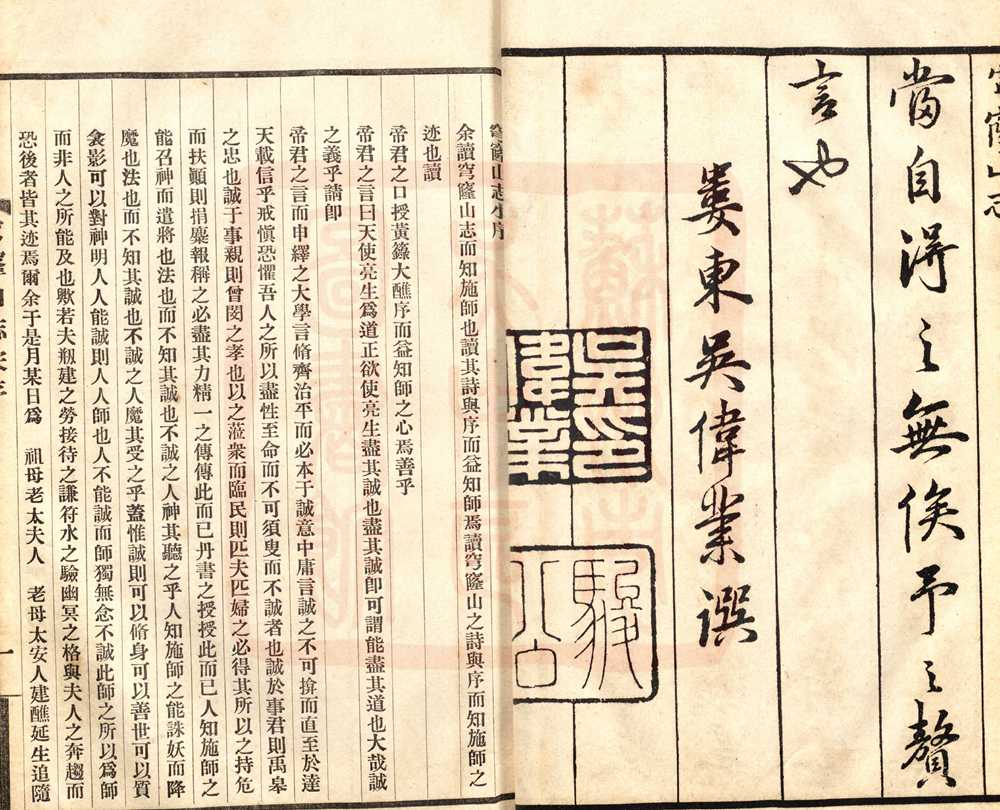 穹窿山志
當自得之無俟予之贅
言也
婁東吳偉業譔
吳偉業印
駿公
穹窿山志小序
余讀穹窿山志而知施師也讀其詩與序而益知師焉讀穹窿山之詩與序而知施師之
迹也讀
帝君之口授黃籙大醮序而益知師之心焉善乎
帝君之言曰天使亮生爲道正欲使亮生盡其誠也盡其誠卽可謂能盡其道也大哉誠
之義乎請卽
帝君之言而申繹之大學言脩齊治平而必本于誠意中庸言誠之不可揜而直至於達
天載信乎戒愼恐懼吾人之所以盡性至命而不可須臾而不誠者也誠於事君則禹皋
之忠也誠于事親則曾閔之孝也以之蒞衆而臨民則匹夫匹婦之必得其所以之持危
而扶顚則捐糜報稱之必盡其力精一之傳傳此而已丹書之授授此而已人知施師之
能召神而遣將也法也而不知其誠也不誠之人神其聽之乎人知施師之能誅妖而降
魔也法也而不知其誠也不誠之人魔其受之乎蓋惟誠則可以脩身可以善世可以質
衾影可以對神明人人能誠則人人師也人不能誠而師獨無念不誠此師之所以爲師
而非人之所能及也歟若夫剏建之勞接待之謙符水之驗幽冥之格與夫人之奔趨而
恐後者皆其迹焉爾余于是月某日爲 祖母老太夫人 老母太安人建醮延生追隨
一